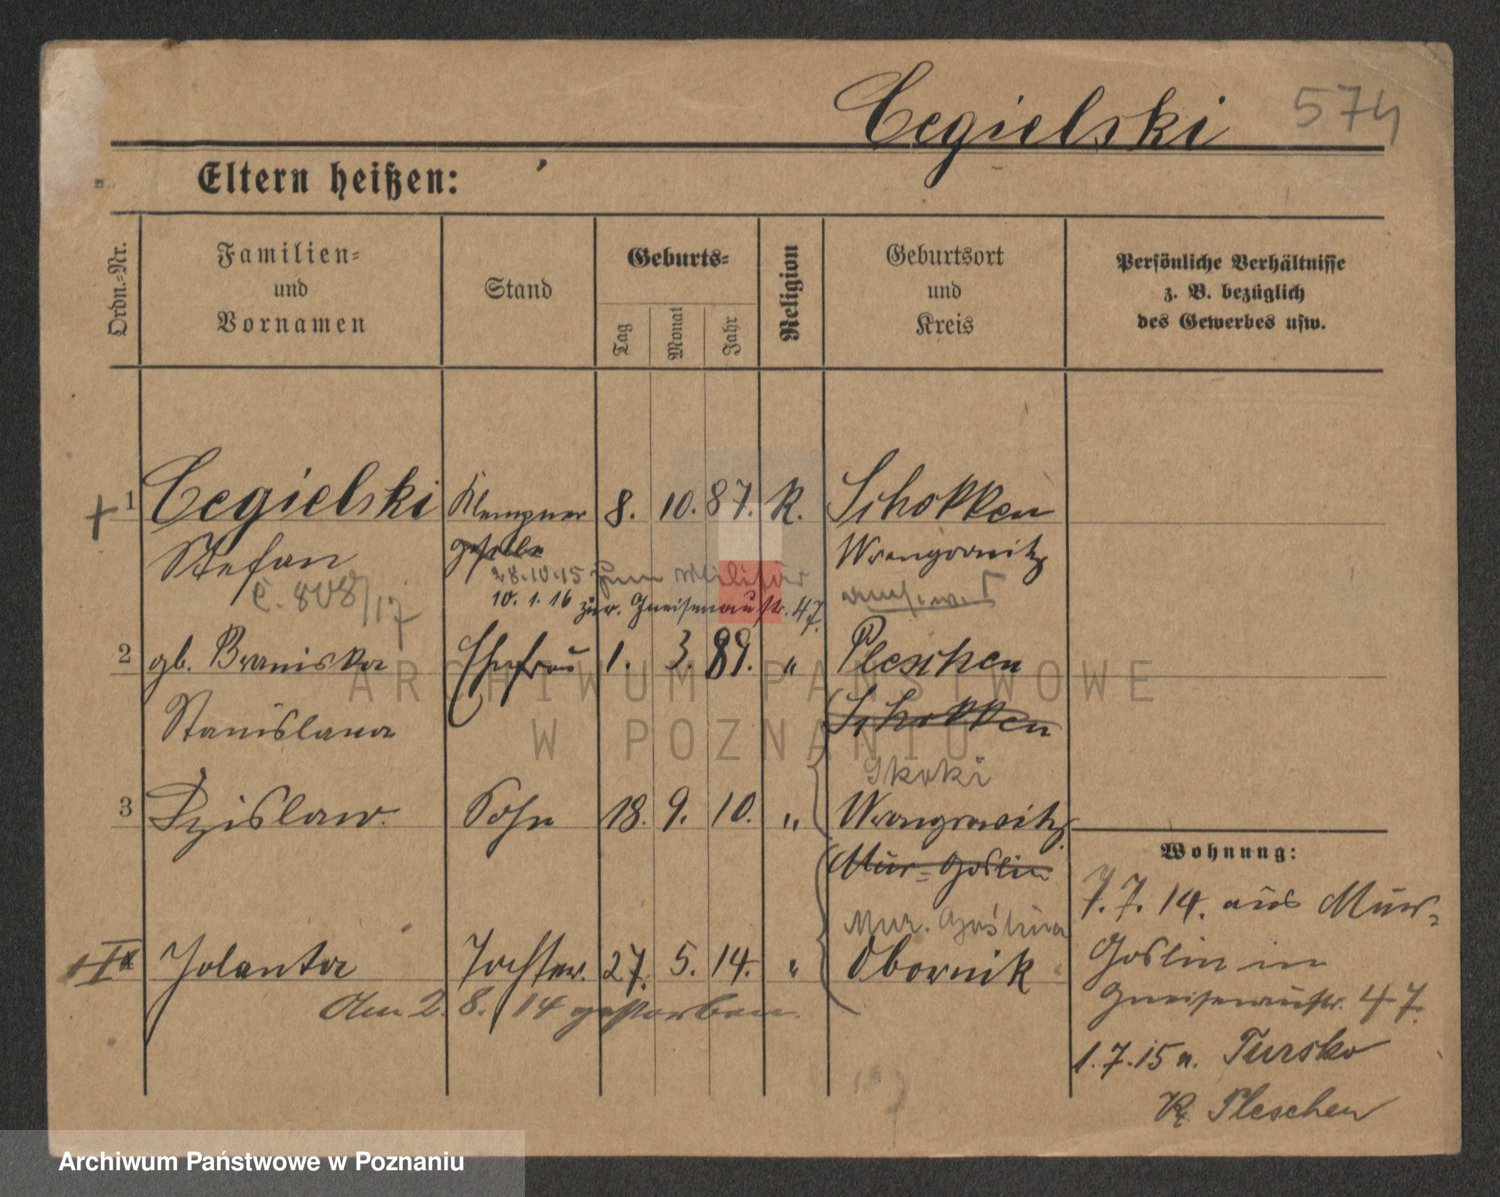 Cegielski 574
Eltern heißen:
Ordn.-Nr.
Familien-
und
Vornamen
Stand
Geburts-
Tag
Monat
Jahr
Religion
Geburtsort
und
Kreis
Persönliche Verhältnisse
z. B. bezüglich
des Gewerbes usw.
+ 1 Cegielski Klempner 8. 10. 87. K. Schokken
Stefan geselle Wrongrowitz
28.10.15 zum Militär
C. 808/17
10. 1. 16 zur. Gneisenaustr. 47.
2 gb. Braniska Ehefrau 1. 3. 89. " Pleschen
Stanislawa Schokken
Skoki
3 Dzislaw. Sohn 18. 9. 10. " Wrongrowitz
Mur-Goslin
Mur. Goślina
Jolanta Tochter. 27. 5. 14. " Obornik
Am 2. 8. 14 gestorben.
Wohnung:
7.7.14. aus Mur-
Goslin in
Gneisenaustr. 47.
1.7.15 n. Tursko
Kr. Pleschen
ARCHIWUM PAŃSTWOWE
W POZNANIU
Archiwum Państwowe w Poznaniu